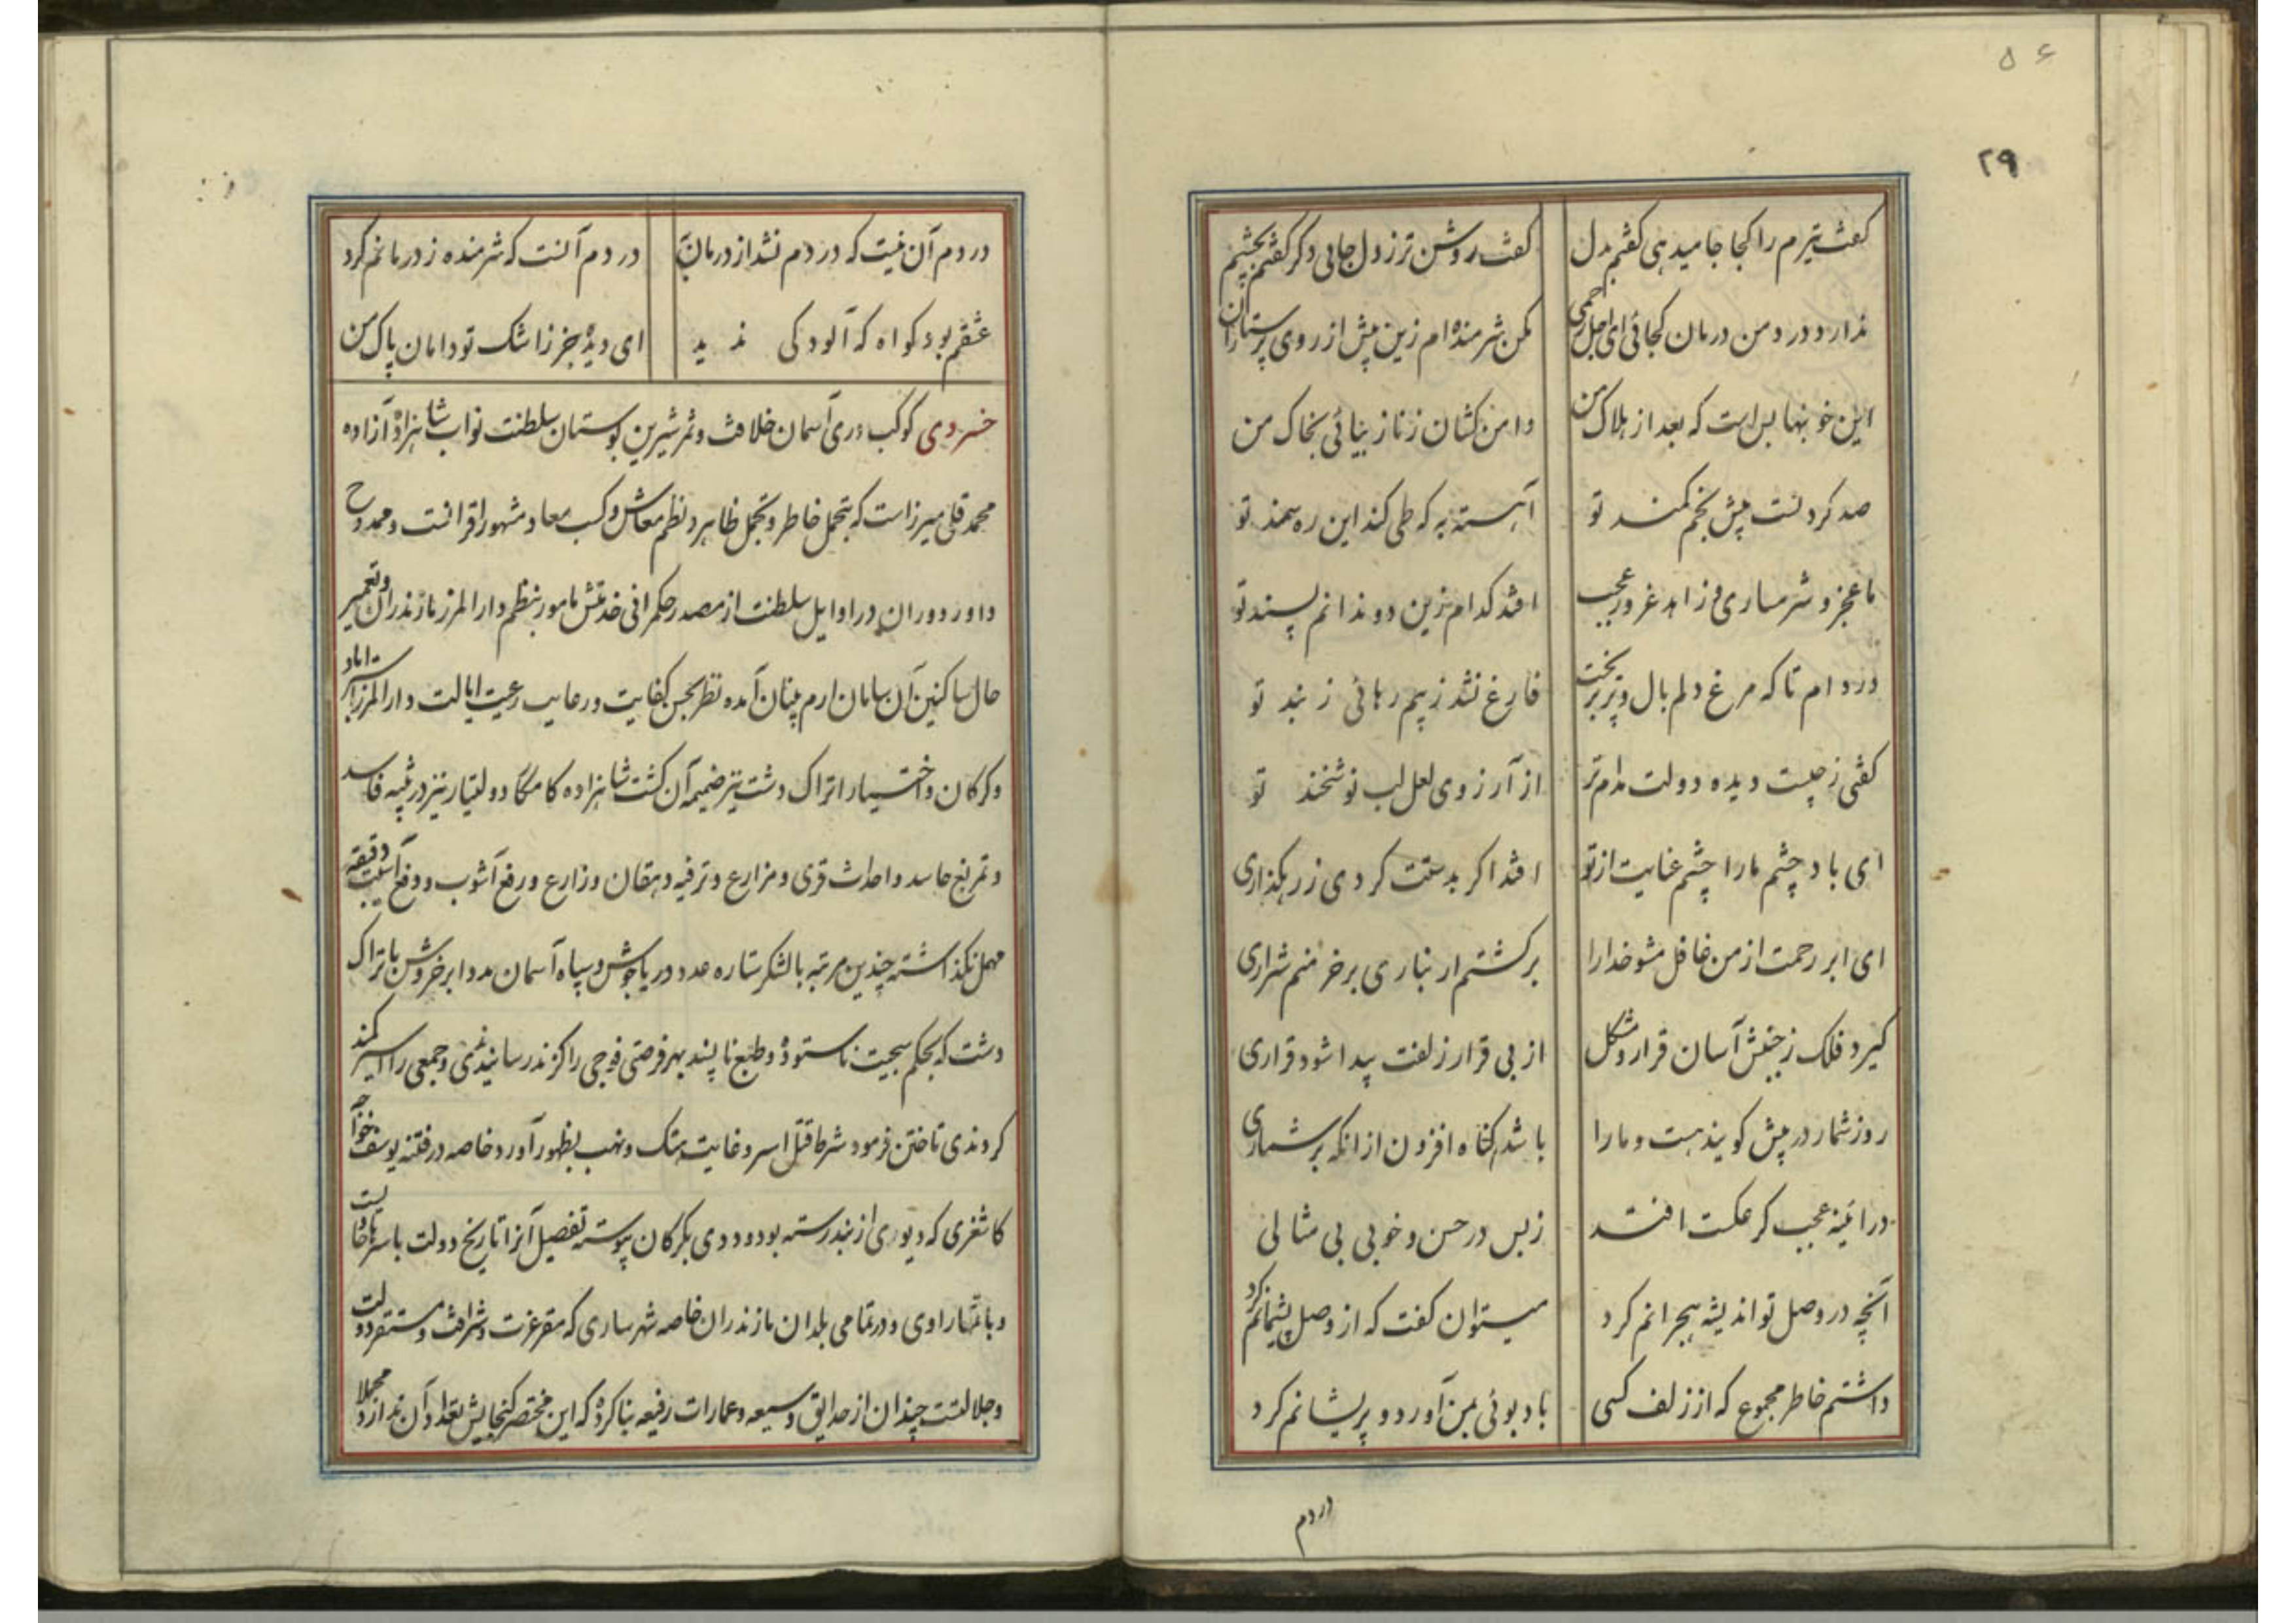 ۵۶
۲۹
گفت تیرم را کجا جا میدهی گفتم بدل گفت روشن تر ز دل جایی دگر گفتم بچشم
ندارد درد من درمان کجائی ای اجل رحمی مکن شرمنده ام زین پیش از روی پرستاران
این خونبها بس است که بعد از هلاک من دامن کشان ز ناز بیائی بخاک من
صد کردنست پیش بخم کمند تو آهسته به که طی کند این ره سمند تو
ما عجز و شرمساری و زاهد غرور و عجب افتد کدام زین دو ندانم پسند تو
در دام تا که مرغ دلم بال و پر بریخت فارغ نشد ز بیم رهائی ز بند تو
کفتی ز چیست دیده دولت مدام تر از آرزوی لعل لب نوشخند تو
ای باد چشم ما را چشم عنایت از تو افتد اکر بدستت کردی ز رهکذاری
ای ابر رحمت از من غافل مشو خدا را بر کشتم ار نباری بر خرمنم شراری
کیرد فلک ز جنبش آسان قرار و مشکل از بی قرار زلفت پیدا شود قراری
روز شمار در پیش کویند هست و ما را باشد کناه افزون از انکه بر شماری
در ائینه عجب کر عکست افتد ز بس در حسن و خوبی بی مثالی
آنچه در وصل تو اندیشه هجرانم کرد میتوان کفت که از وصل پشیمانم کرد
داشتم خاطر مجموع که از زلف کسی باد بوئی بمن آورد و پریشانم کرد
دردم
دردم آن نیست که دردم نشد از درمان به دردم آنست که شرمنده ز درمانم کرد
عشقم بود کواه که آلودکی ندید ای دیده جز ز اشک تو دامان پاک من
خسروی کوکب دری آسمان خلافت و ثمر شیرین بوستان سلطنت نواب شاهزاده آزاده
محمد قلی میرزاست که بتجمل خاطر و تجمل ظاهر و نظم معاش و کسب معاد مشهور اقرانست و ممدوح
داور دوران در اوایل سلطنت از مصدر حکمرانی خدمتش مامور بنظم دارالمرز مازندران و تعمیر
حال ساکنین آن سامان ارم بنیان آمده نظر بحسن کفایت و رعایت رعیت ایالت دارالمرز استراباد
و کرکان و اختیار اتراک دشت نیز ضمیمه آن کشت شاهزاده کامکار دولتیار نیز در تنبیه فاسد
و تمریغ حاسد و احداث قری و مزارع و ترفیه دهقان و زارع و رفع آشوب و دفع آسیب دقیقه
مهمل نکذاشته چندین مرتبه با لشکر ستاره عدد دریا جوش و سپاه آسمان مدد ابر خروش باتراک
دشت که بحکم سجیت ناستوده و طبع ناپسند بهر فرصتی فوجی را کزند رسانیدندی و جمعی را اسیر کمند
کردندی تاختن فرمود شرط قتل و اسر و غایت هتک و نهب بظهور آورد خاصه در فتنه یوسف خواجه
کاشغری که دیوی از بند رسته بود و ددی بکرکان پیوسته تفصیل آنرا تاریخ دولت با سرها حاویست
و باشتهار راوی و در تمامی بلدان مازندران خاصه شهر ساری که مقر عزت و شرافت و مستقر دولت
و جلالتست چندان از حدایق وسیعه و عمارات رفیعه بنا کرده که این مختصر کنجایش تعداد آن ندارد مجملا